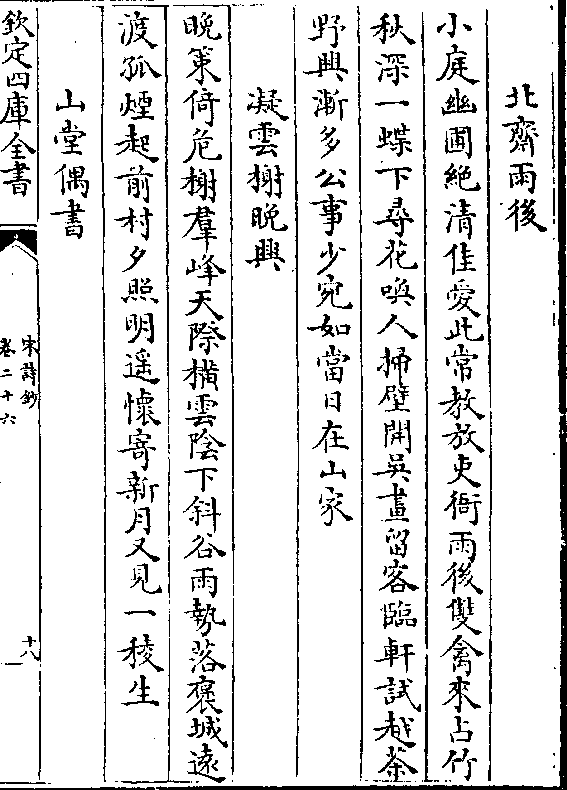 北齋雨後
小庭幽圃絶清佳愛此常教放吏衙雨後雙禽來占竹
秋深一蝶下尋花喚人掃壁開吳畫留客臨軒試越茶
野興漸多公事少宛如當日在山家
凝雲榭晚興
晚策倚危榭羣峰天際橫雲陰下斜谷雨勢落褒城遠
渡孤煙起前村夕照明遥懷寄新月又見一稜生
山堂偶書
欽定四庫全書
宋詩鈔
卷二十六
十八